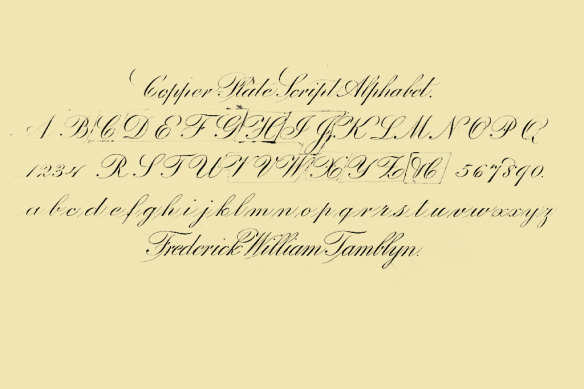 Copper Plate Script Alphabet.
A B C D E F G H I J K L M N O P Q
1234 R S T U V V W X Y Z &C 567890.
a b c d e f g h i j k l m n o p q r r s t u v w x x y z
Frederick William Tamblyn.